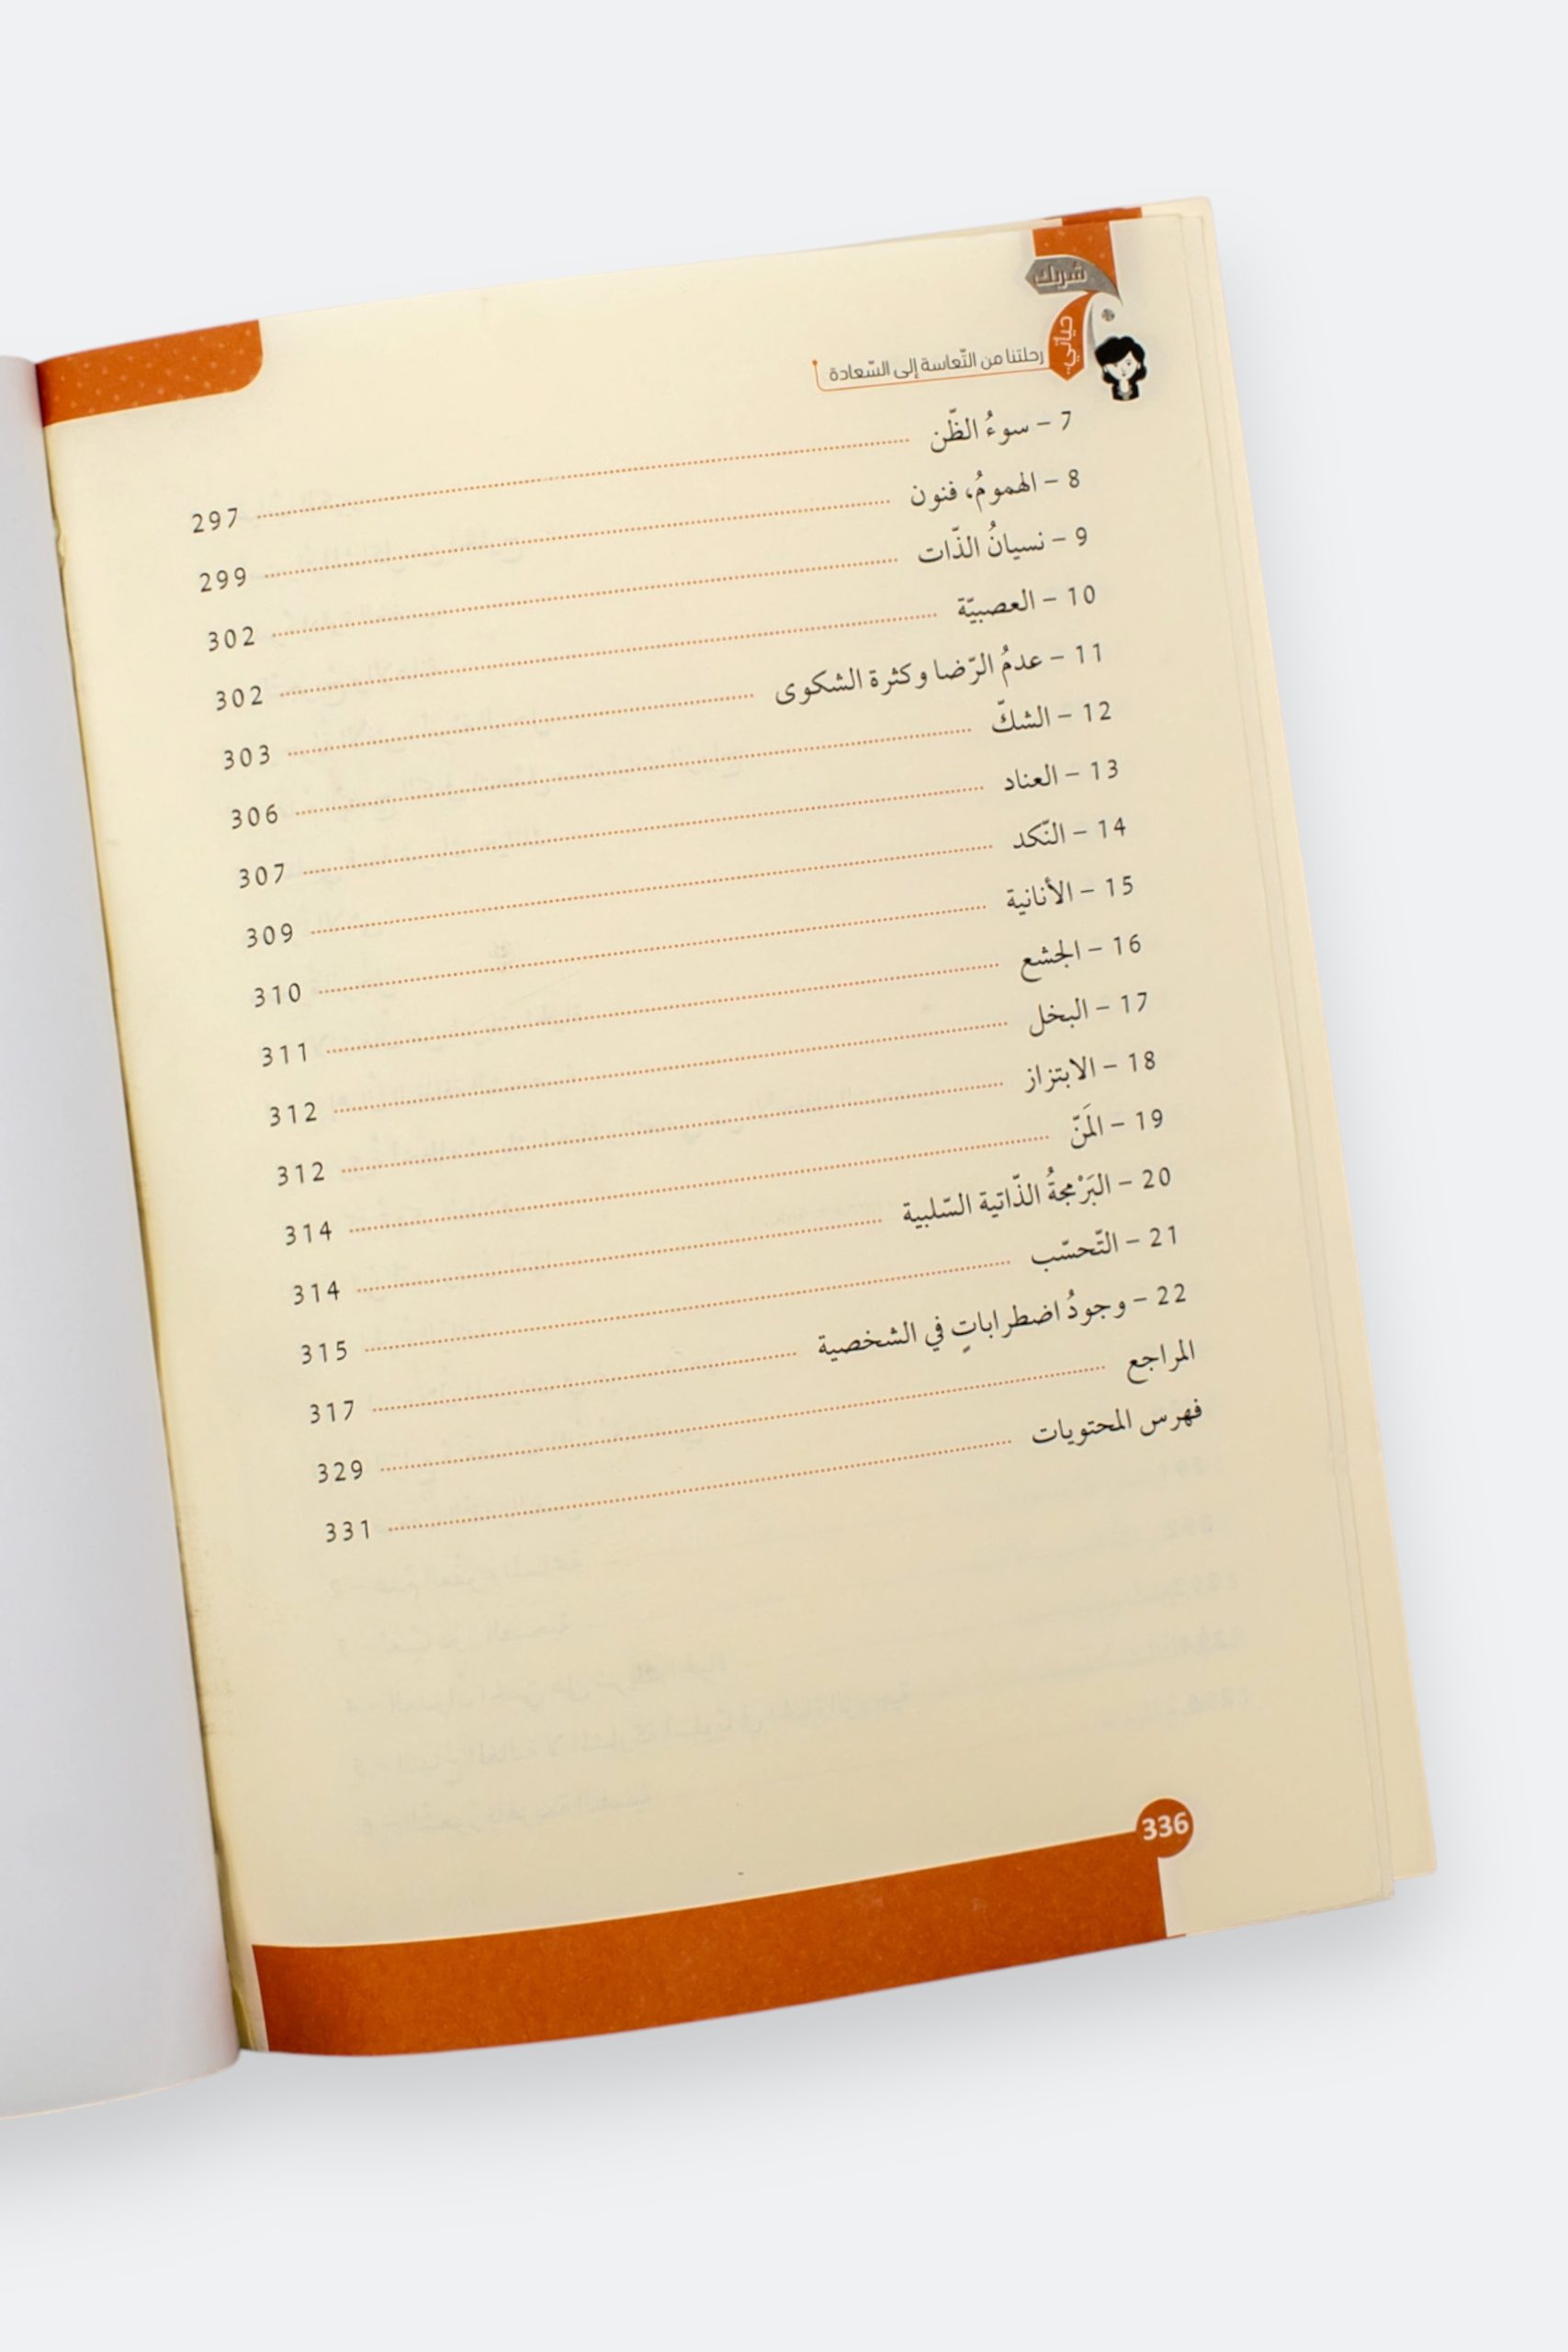 شريك
حياتي..
رحلتنا من التّعاسة إلى السّعادة
7 – سوءُ الظّن ........ 297
8 – الهمومُ، فنون ........ 299
9 – نسيانُ الذّات ........ 302
10 – العصبيّة ........ 302
11 – عدمُ الرّضا وكثرة الشكوى ........ 303
12 – الشكّ ........ 306
13 – العناد ........ 307
14 – النّكد ........ 309
15 – الأنانية ........ 310
16 – الجشع ........ 311
17 – البخل ........ 312
18 – الابتزاز ........ 312
19 – المَنّ ........ 314
20 – البَرْمجةُ الذّاتية السّلبية ........ 314
21 – التّحسّب ........ 315
22 – وجودُ اضطراباتٍ في الشخصية ........ 317
المراجع ........ 329
فهرس المحتويات ........ 331
336